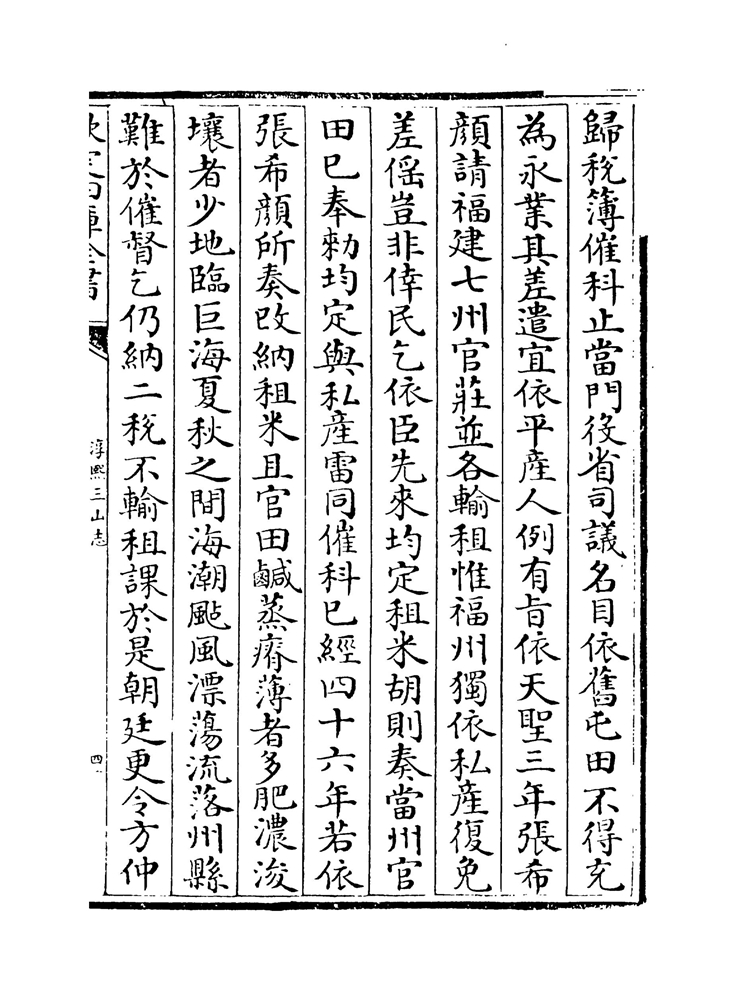 歸稅簿催科止當門役省司議名目依舊屯田不得充
為永業其差遣宜依平産人例有旨依天聖三年張希
顔請福建七州官莊並各輸租惟福州獨依私産復免
差徭豈非倖民乞依臣先來均定租米胡則奏當州官
田已奉勑均定與私産雷同催科已經四十六年若依
張希顔所奏改納租米且官田鹹蒸瘠薄者多肥濃浚
壤者少地臨巨海夏秋之間海潮颱風漂蕩流落州縣
難於催督乞仍納二稅不輸租課於是朝廷更令方仲
欽定四庫全書
淳熙三山志
四